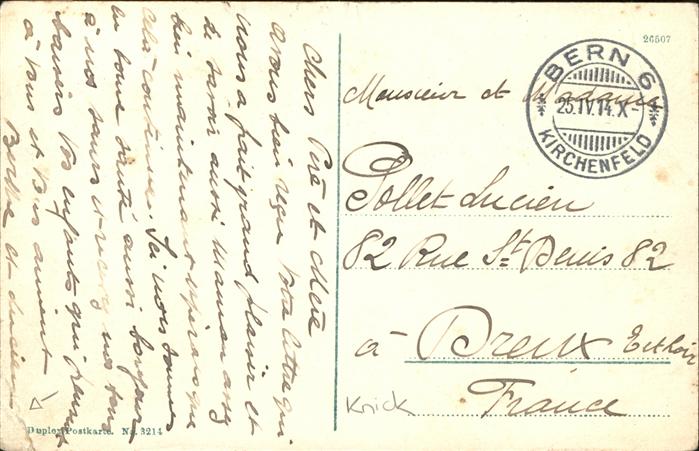 Chers Père et Mère
avons bien reçu votre lettre qui
nous a fait grand plaisir et
de savoir aussi Maman assez
bien maintenant espérons que
cela continue. Ici nous sommes
en bonne santé aussi toujours
à nos
baisers Vos enfants qui pensent
à vous et vous aiment
Berthe et Lucien
Duplex Postkarte. No. 3214
26507
BERN 6
25.IV.14.X-
KIRCHENFELD
Monsieur et Madame
Pollet Lucien
82 Rue St Denis 82
à Dreux Eure et Loir
France
Krick